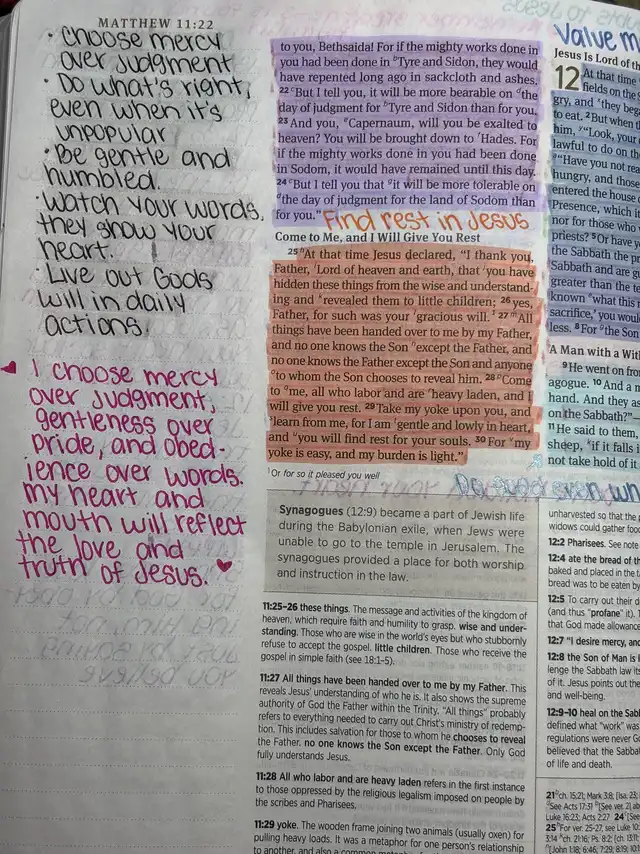 MATTHEW 11:22
• Choose mercy
over judgment
• Do what's right,
even when it's
unpopular
• Be gentle and
humbled.
• Watch your words,
they show your
heart.
• Live out Gods
will in daily
actions.
I choose mercy
over judgment,
gentleness over
pride, and obed-
ience over words.
My heart and
mouth will reflect
the love and
truth of Jesus.
to you, Bethsaida! For if the mighty works done in
you had been done in Tyre and Sidon, they would
have repented long ago in sackcloth and ashes.
22 But I tell you, it will be more bearable on the
day of judgment for Tyre and Sidon than for you.
23 And you, Capernaum, will you be exalted to
heaven? You will be brought down to Hades. For
if the mighty works done in you had been done
in Sodom, it would have remained until this day.
24 But I tell you that it will be more tolerable on
the day of judgment for the land of Sodom than
for you."
Find rest in Jesus
Come to Me, and I Will Give You Rest
25 At that time Jesus declared, "I thank you,
Father, Lord of heaven and earth, that you have
hidden these things from the wise and understand-
ing and revealed them to little children; 26 yes,
Father, for such was your gracious will. 27 All
things have been handed over to me by my Father,
and no one knows the Son except the Father, and
no one knows the Father except the Son and anyone
to whom the Son chooses to reveal him. 28 Come
to me, all who labor and are heavy laden, and I
will give you rest. 29 Take my yoke upon you, and
learn from me, for I am gentle and lowly in heart,
and you will find rest for your souls. 30 For my
yoke is easy, and my burden is light."
1 Or for so it pleased you well
Synagogues (12:9) became a part of Jewish life
during the Babylonian exile, when Jews were
unable to go to the temple in Jerusalem. The
synagogues provided a place for both worship
and instruction in the law.
11:25–26 these things. The message and activities of the kingdom of
heaven, which require faith and humility to grasp. wise and under-
standing. Those who are wise in the world's eyes but who stubbornly
refuse to accept the gospel. little children. Those who receive the
gospel in simple faith (see 18:1–5).
11:27 All things have been handed over to me by my Father. This
reveals Jesus' understanding of who he is. It also shows the supreme
authority of God the Father within the Trinity. "All things" probably
refers to everything needed to carry out Christ's ministry of redemp-
tion. This includes salvation for those to whom he chooses to reveal
the Father. no one knows the Son except the Father. Only God
fully understands Jesus.
11:28 All who labor and are heavy laden refers in the first instance
to those oppressed by the religious legalism imposed on people by
the scribes and Pharisees.
11:29 yoke. The wooden frame joining two animals (usually oxen) for
pulling heavy loads. It was a metaphor for one person's relationship
to another, and also a common
Value
Jesus Is Lord of
12 At that time
fields on the
gry, and they
to eat. 2 But when
him, "Look, your
lawful to do on
3 "Have you not
hungry, and those
entered the house
Presence, which
nor for those who
priests? 5 Or have
the Sabbath the
Sabbath and are
greater than the
known "what this
sacrifice,' you would
less. 8 For the Son
A Man with a
9 He went on from
agogue. 10 And a
hand. And they
on the Sabbath?"
11 He said to them,
sheep, if it falls
not take hold of it
Do good even
unharvested so that the
widows could gather
12:2 Pharisees. See note
12:4 ate the bread of
baked and placed in the
bread was to be eaten by
12:5 To carry out their
(and thus "profane" it).
that God made allowance
12:7 "I desire mercy, and
12:8 the Son of Man is
lenge the Sabbath law
of it. Jesus points out the
and well-being.
12:9–10 heal on the
defined what "work" was
regulations were never
believed that the
of life and death.